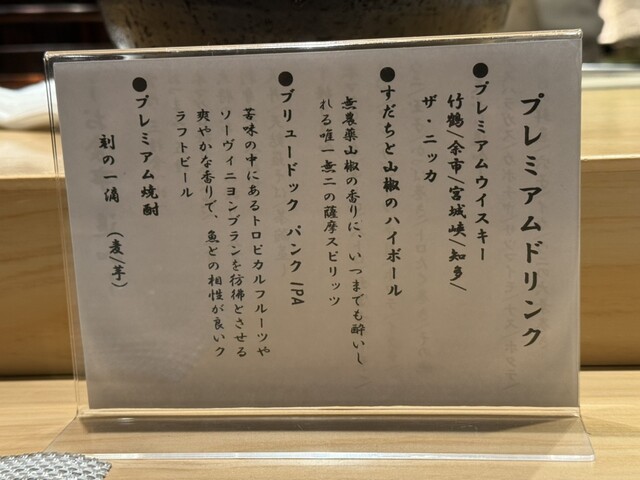 プレミアムドリンク
●プレミアムウイスキー
竹鶴/余市/宮城峡/知多/
ザ・ニッカ
●すだちと山椒のハイボール
無農薬山椒の香りに、いつまでも酔いし
れる唯一無二の薩摩スピリッツ
●ブリュードック パンクIPA
苦味の中にあるトロピカルフルーツや
ソーヴィニヨンブランを彷彿とさせる
爽やかな香りで、魚との相性が良いク
ラフトビール
●プレミアム焼酎
刻の一滴 (麦/芋)